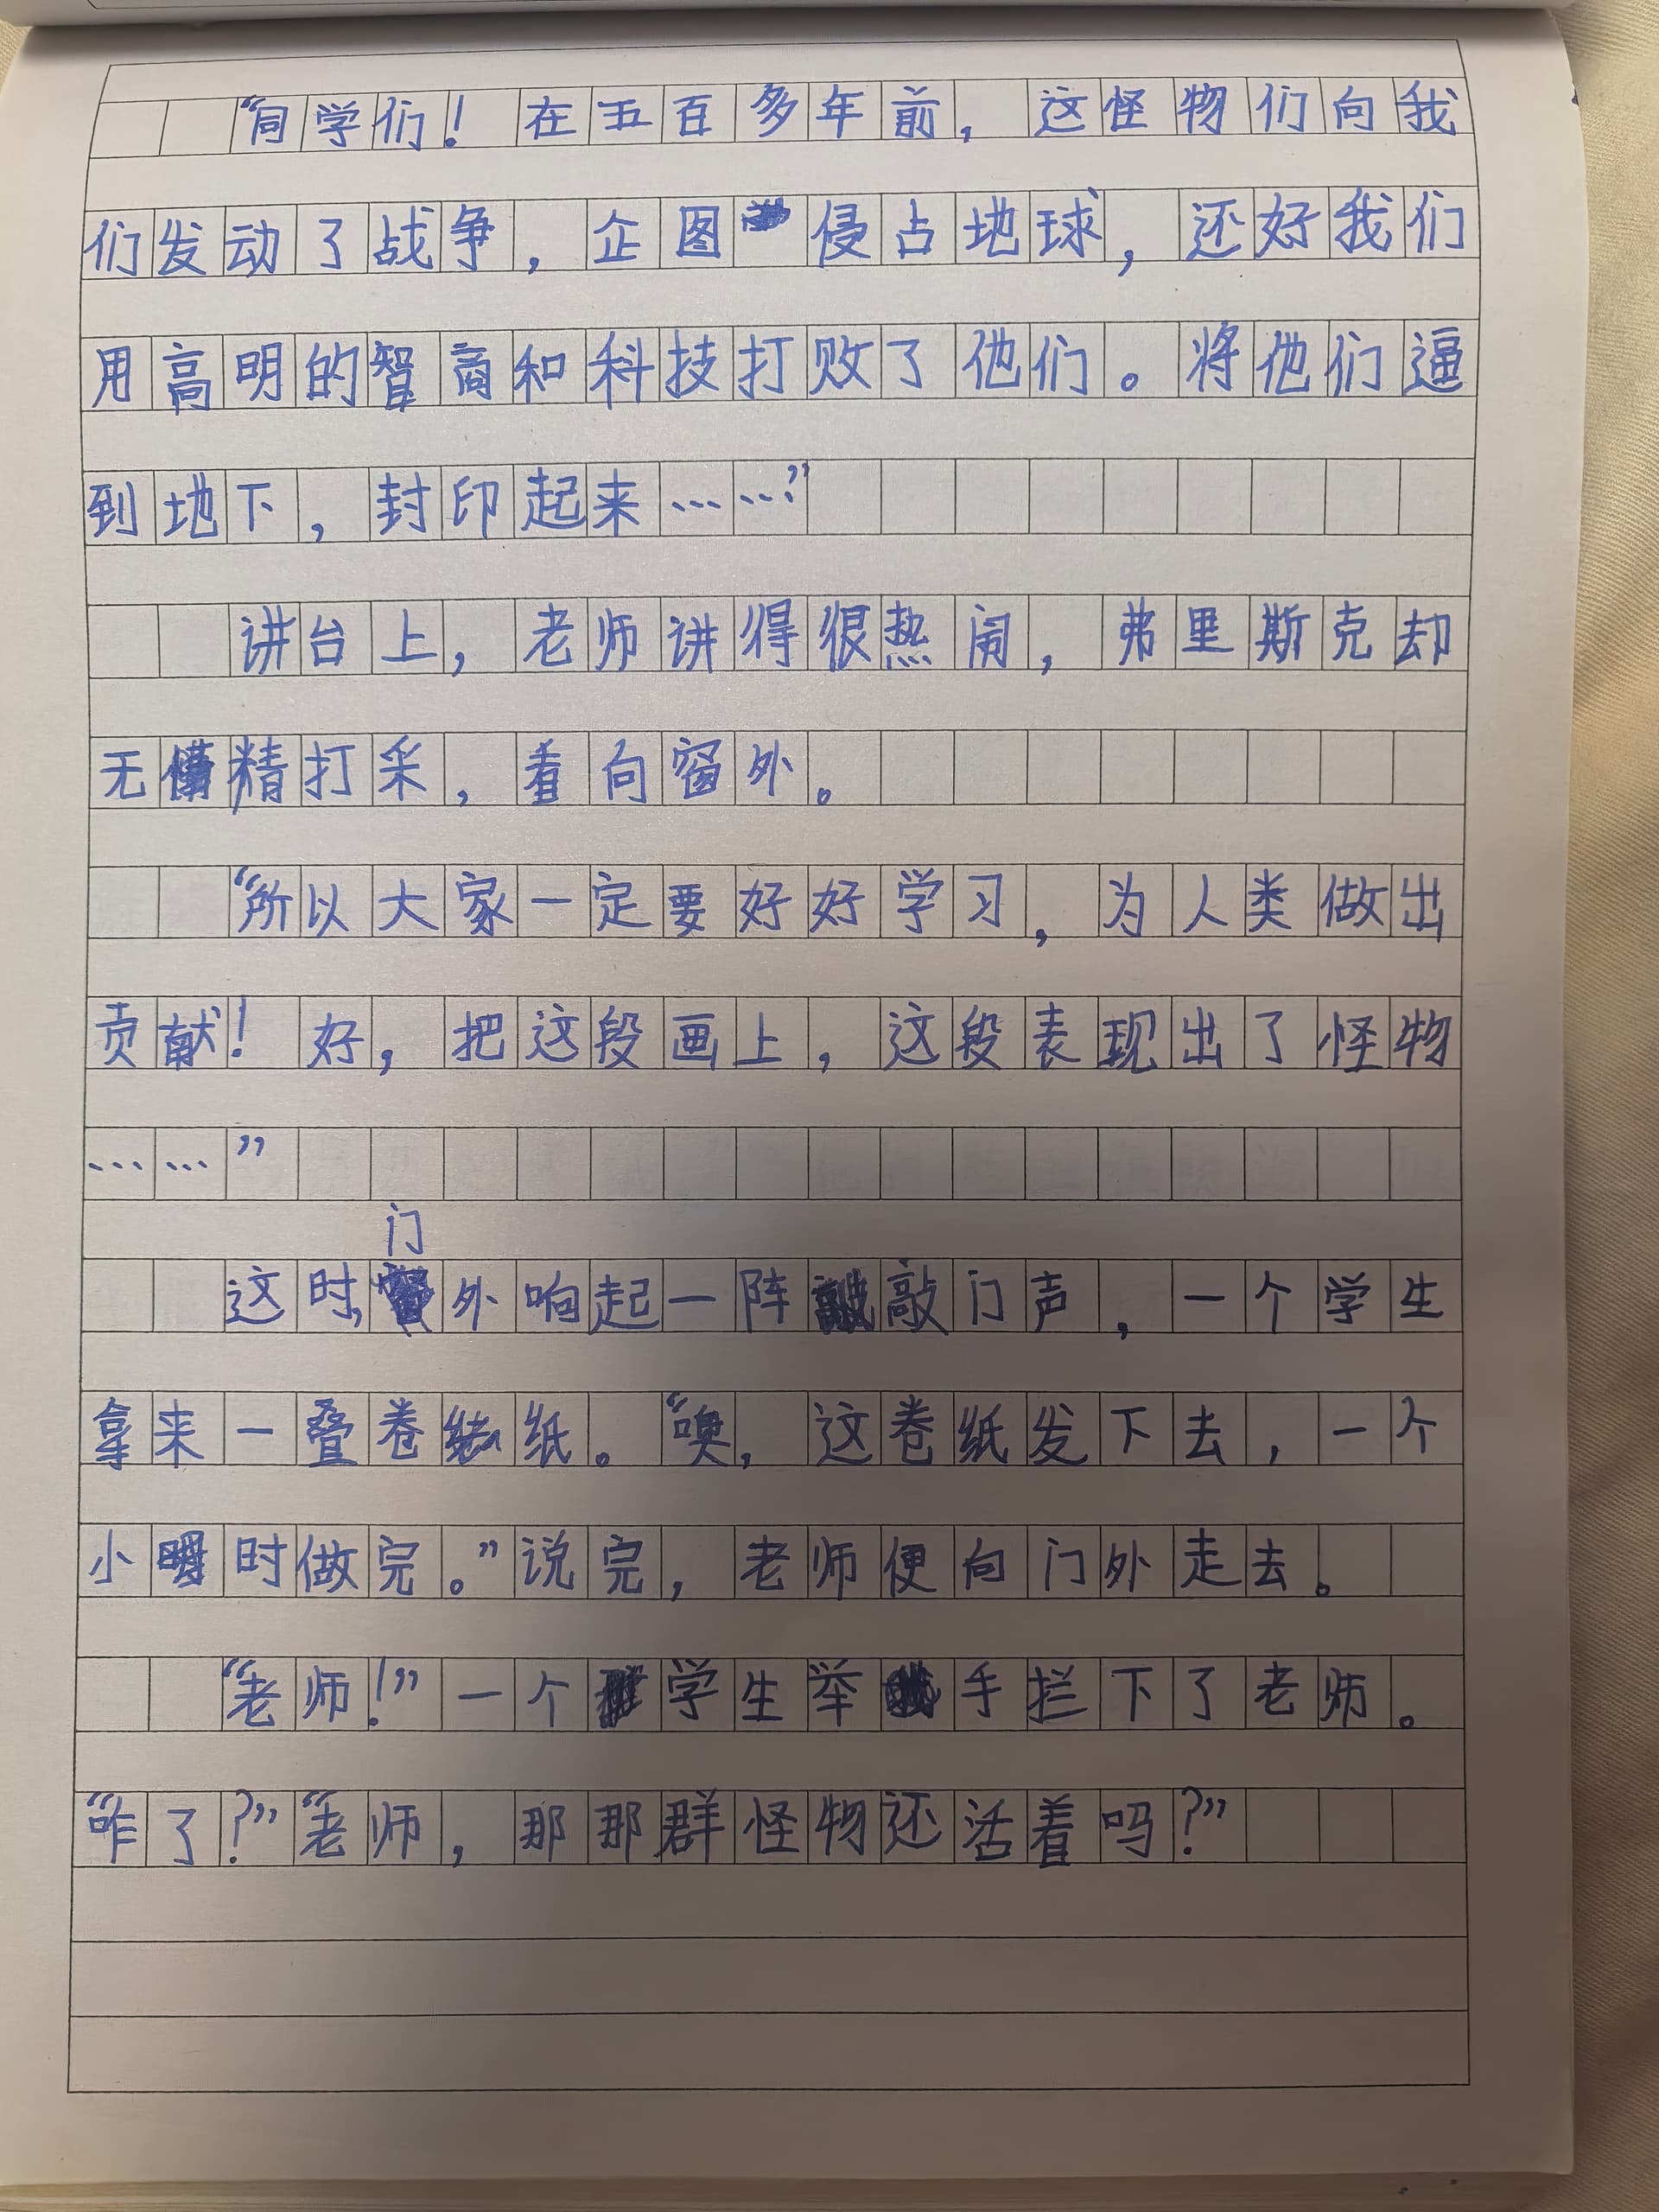 “同学们！在五百多年前，这怪物们向我
们发动了战争，企图侵占地球，还好我们
用高明的智商和科技打败了他们。将他们逼
到地下，封印起来……”
讲台上，老师讲得很热闹，弗里斯克却
无精打采，看向窗外。
“所以大家一定要好好学习，为人类做出
贡献！好，把这段画上，这段表现出了怪物
……”
这时，门外响起一阵敲门声，一个学生
拿来一叠卷纸。“噢，这卷纸发下去，一个
小时做完。”说完，老师便向门外走去。
“老师！”一个学生举手拦下了老师。
“咋了？”“老师，那那群怪物还活着吗？”